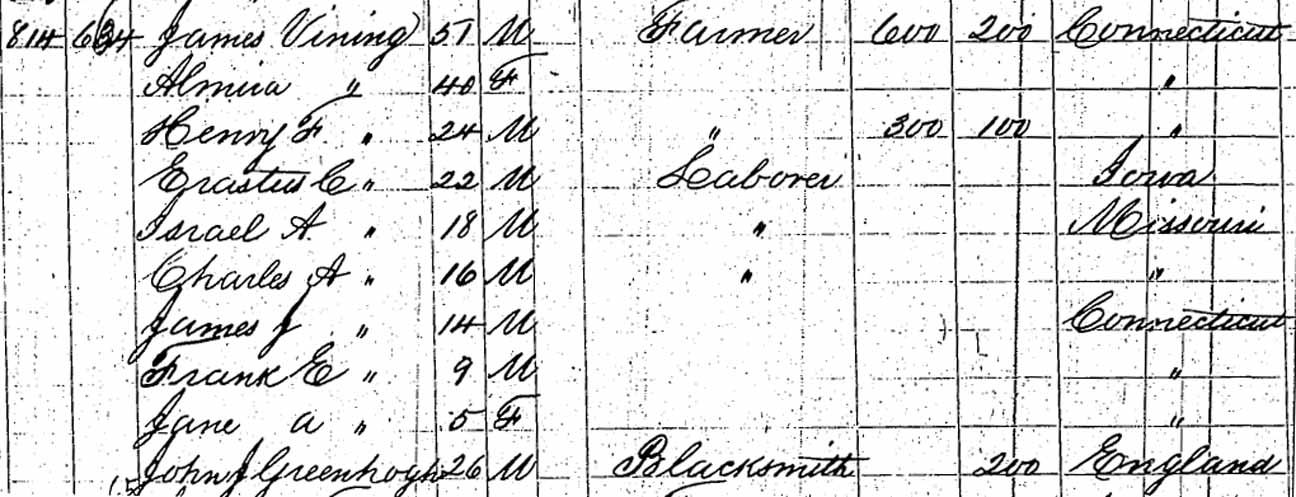 814 634 James Vining 51 M Farmer 600 200 Connecticut
Almira " 40 F "
Henry F. " 24 M " 300 100 "
Erastus C " 22 M Laborer Iowa
Israel A. " 18 M " Missouri
Charles A " 16 M " "
James J " 14 M Connecticut
Frank E " 9 M "
Jane a " 5 F "
John J Greenhogh 26 M Blacksmith 200 England